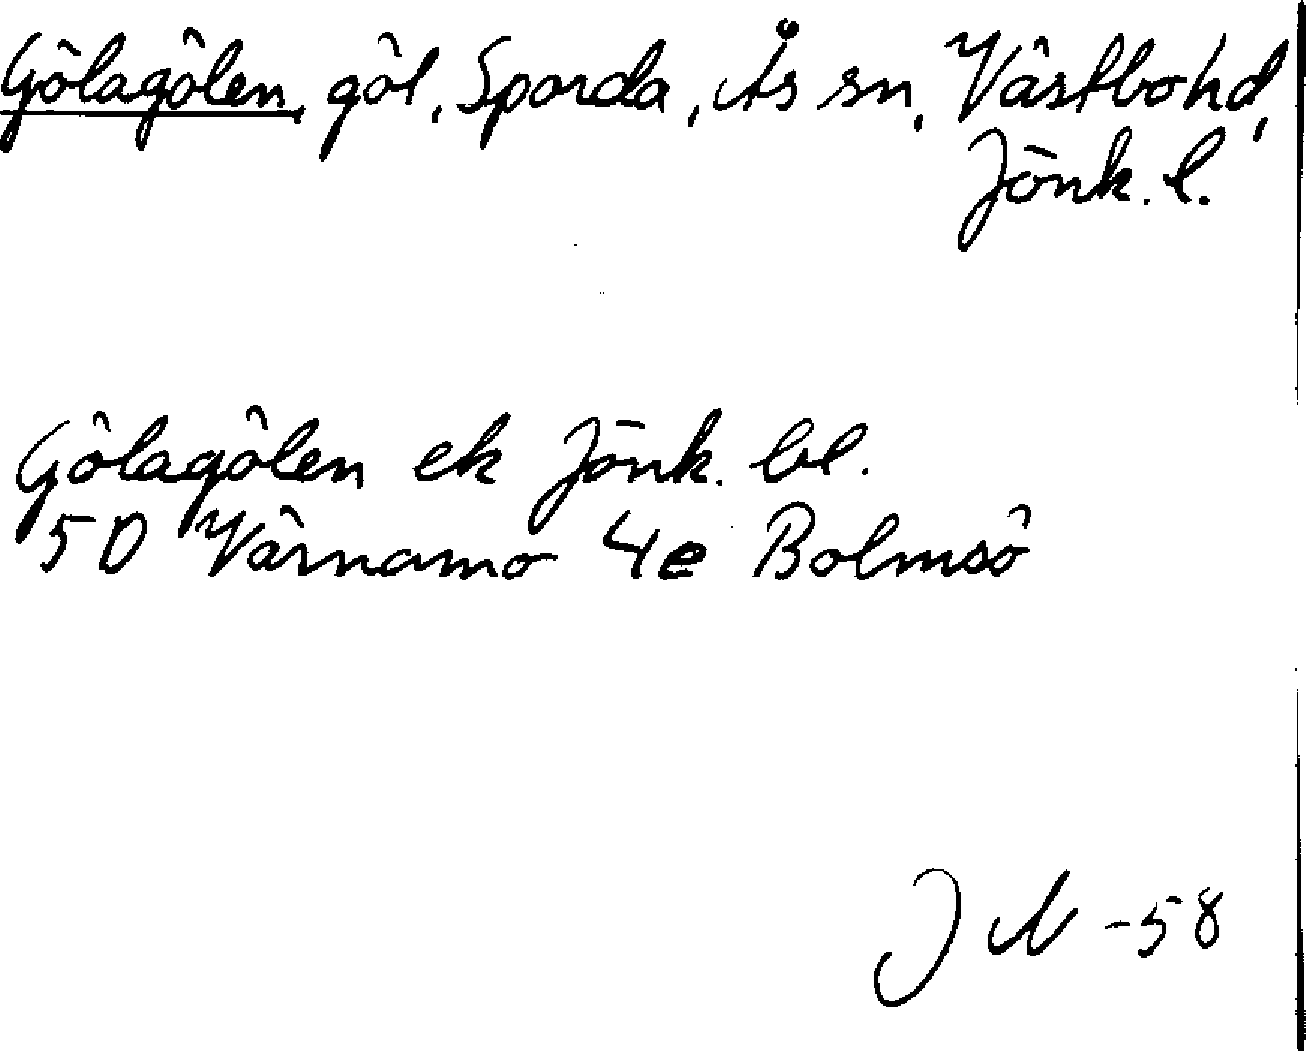 Gölagölen, göl, Sporda, Ås sn, Västbo hd,
Jönk. l.
Gölagölen ek Jönk. bl.
5D Värnamo 4e Bolmsö
J N -58